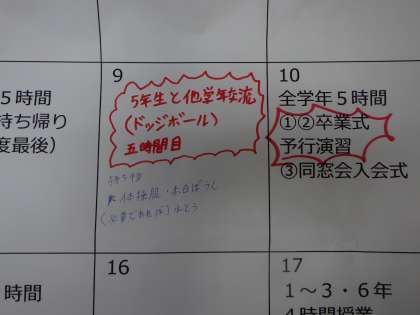 5時間
持ち帰り
度最後）
9
5年生と他学年交流
（ドッジボール）
五時間目
体操服・赤白ぼうし
(必要であれば)水とう
10
全学年5時間
①②卒業式
予行演習
③同窓会入会式
時間
16
17
1〜3・6年
4時間授業